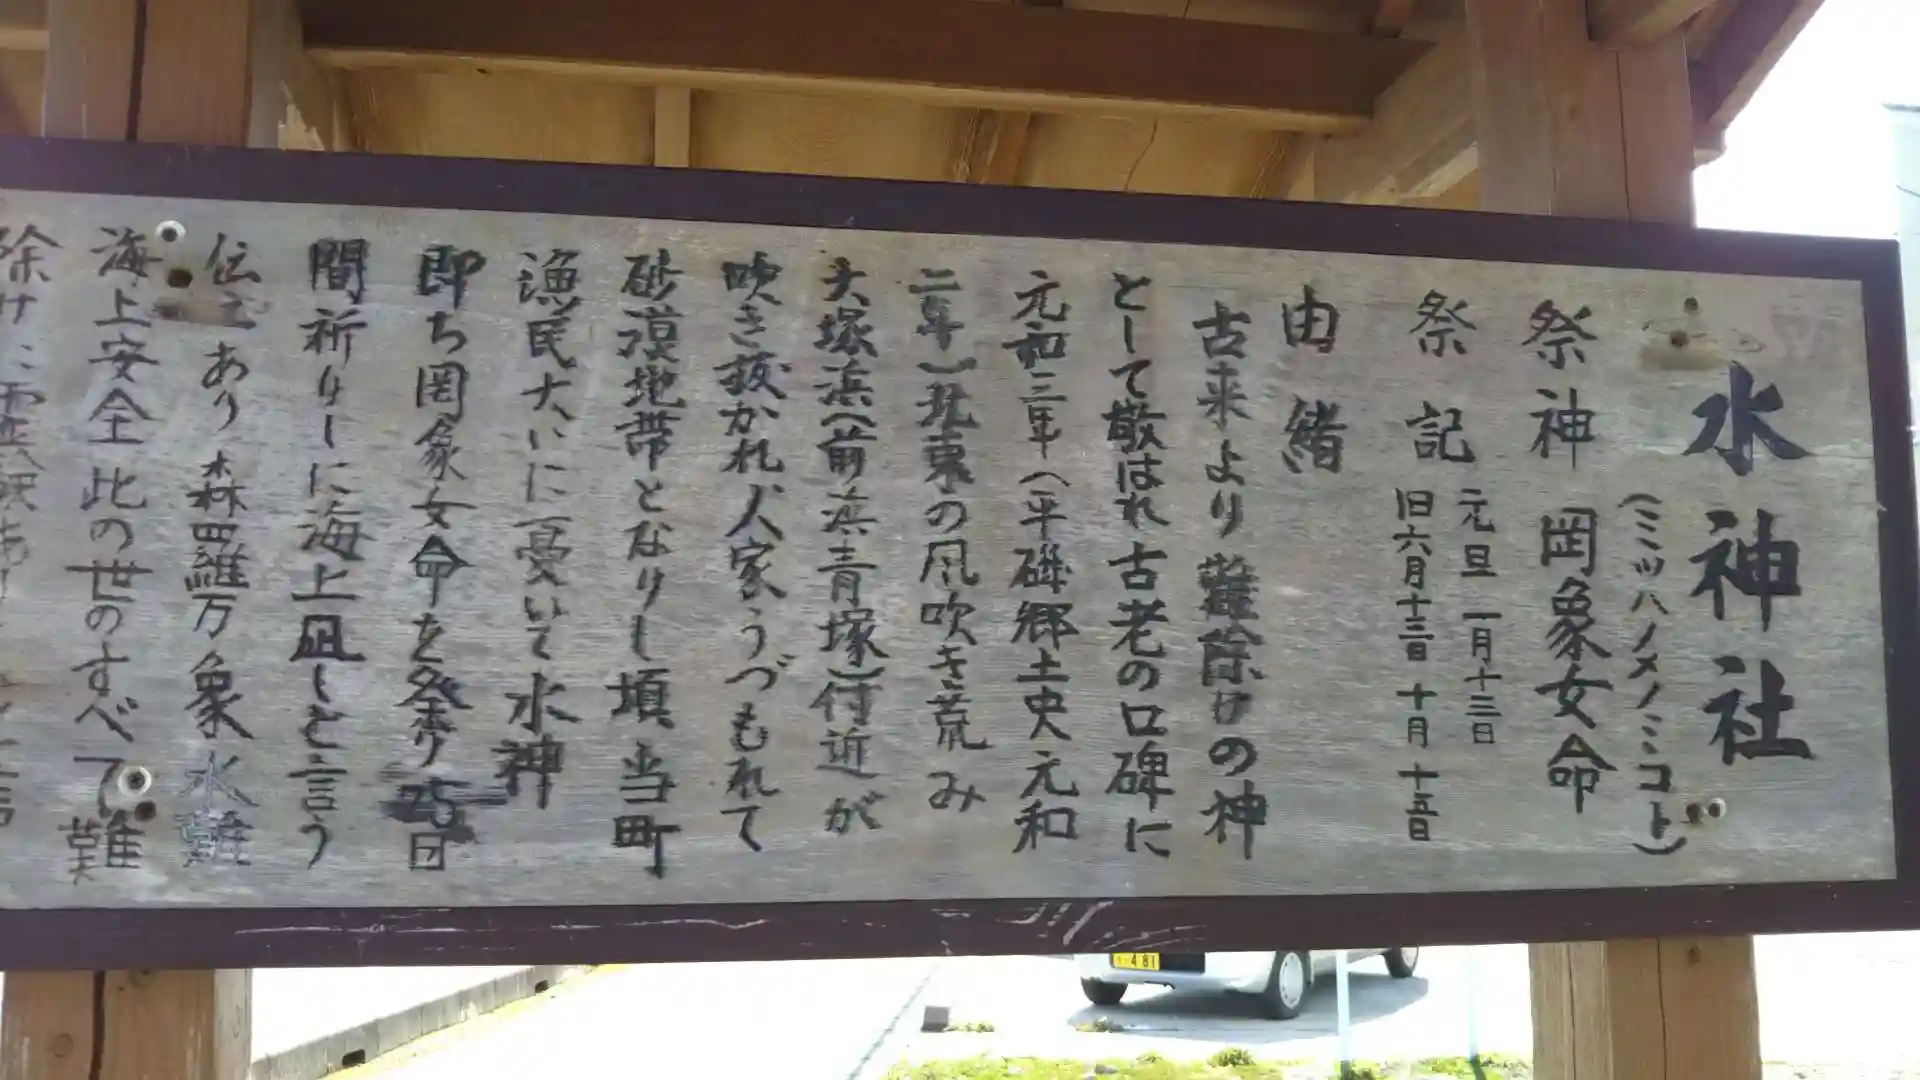 水神社
(ミツハノメノミコト)
祭神 罔象女命
祭記 元旦 一月十三日
旧六月十三日 十月十五日
由緒
古来より難除けの神
として敬はれ古老の口碑に
元和三年(平磯郷土史元和
二年)北東の風吹き荒み
大塚浜(前浜青塚)付近が
吹き抜かれ人家うづもれて
砂漠地帯となりし頃当町
漁民大いに憂いて水神
即ち罔象女命を祭り 日
間祈りしに海上凪しと言う
伝えあり森羅万象水難
海上安全此の世のすべて難
除けに霊
481